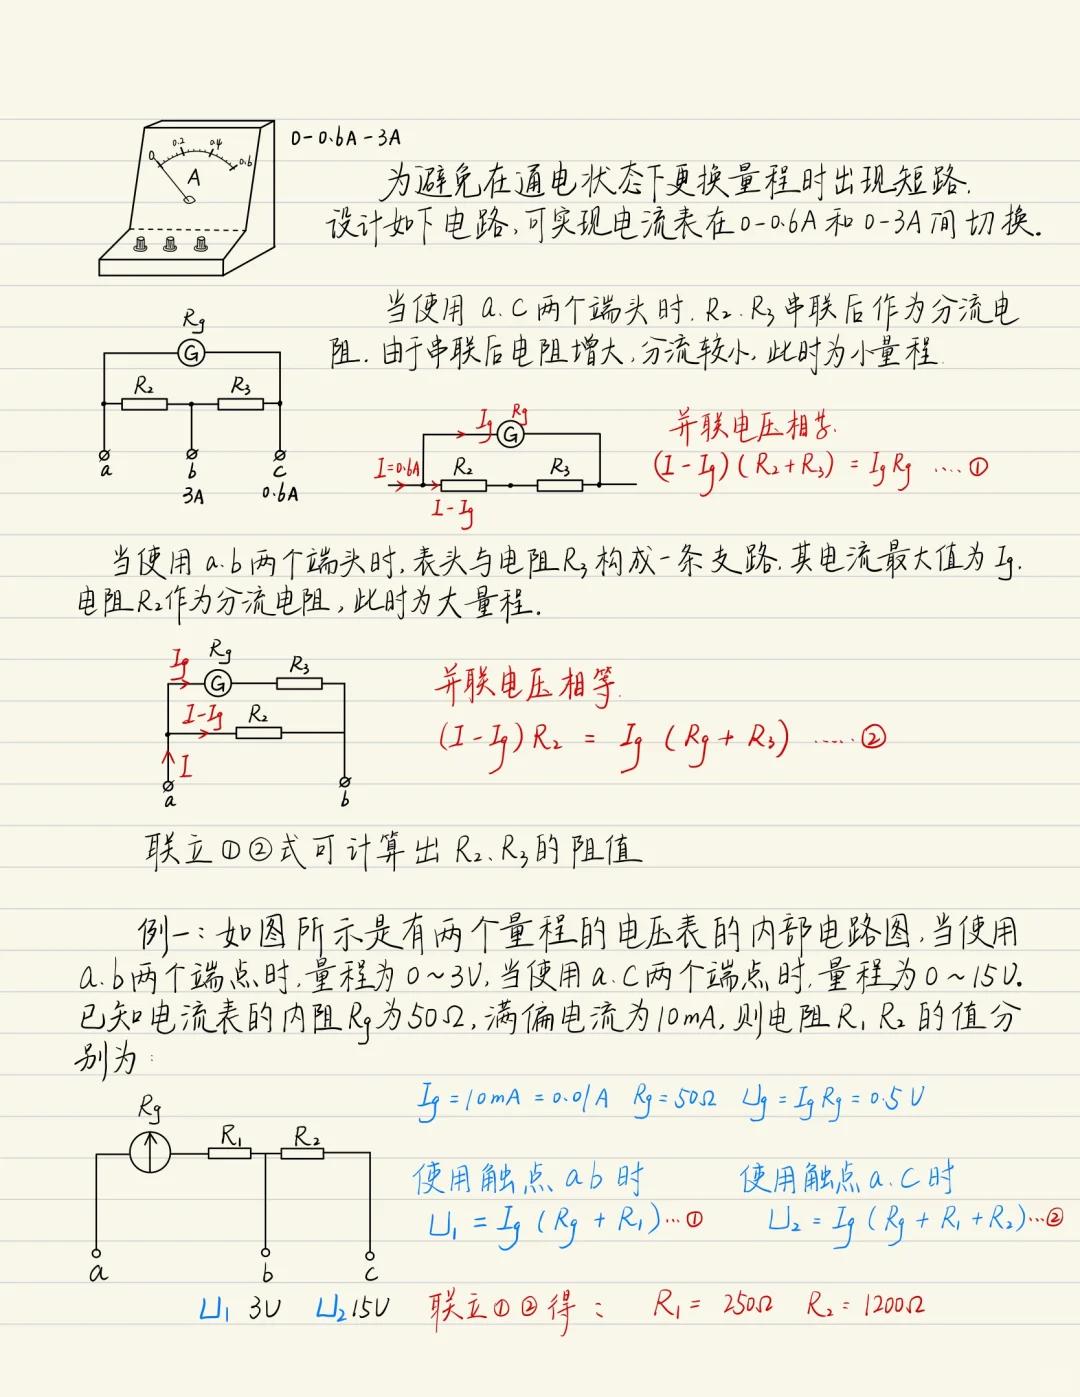 0-0.6A-3A
0 0.2 0.4 0.6
A
为避免在通电状态下更换量程时出现短路.
设计如下电路,可实现电流表在0-0.6A和0-3A间切换.
当使用a.c两个端头时.R₂.R₃串联后作为分流电
阻.由于串联后电阻增大,分流较小,此时为小量程.
Rg
G
R₂ R₃
a b c
3A 0.6A
Ig Rg
G
I=0.6A R₂ R₃
I-Ig
并联电压相等.
(I-Ig)(R₂+R₃)=IgRg ····①
当使用a.b两个端头时,表头与电阻R₃构成一条支路.其电流最大值为Ig.
电阻R₂作为分流电阻,此时为大量程.
Ig Rg
G R₃
I-Ig R₂
I
a b
并联电压相等.
(I-Ig)R₂ = Ig(Rg+R₃) ·····②
联立①②式可计算出R₂、R₃的阻值
例一:如图所示是有两个量程的电压表的内部电路图,当使用
a.b两个端点时,量程为0~3V,当使用a.c两个端点时,量程为0~15V.
已知电流表的内阻Rg为50Ω,满偏电流为10mA,则电阻R₁ R₂的值分
别为:
Rg
R₁ R₂
a b c
U₁ 3V U₂ 15V
Ig=10mA=0.01A Rg=50Ω Ug=IgRg=0.5V
使用触点ab时 使用触点a.c时
U₁=Ig(Rg+R₁)…① U₂=Ig(Rg+R₁+R₂)…②
联立①②得: R₁=250Ω R₂=1200Ω